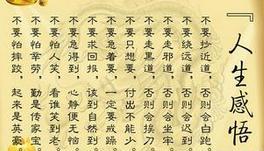 『人生感悟
不要抄近道，否则会白跑。
不要绕远道，否则会迟到。
不要走黑道，否则会坐牢。
不要走邪道，否则会挨刀。
不要只想要，付出不能少。
不要求回报，该到自然到。
不要急得到，心静便无恼。
不要怕人笑，看谁笑到老。
不要怕辛劳，勤是传家宝。
不要怕摔跤，起来是英豪。